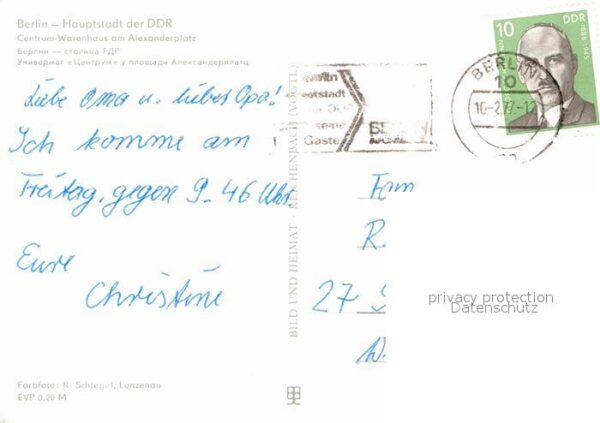 Berlin – Hauptstadt der DDR
Centrum-Warenhaus am Alexanderplatz
Берлин — столица ГДР
Универмаг «Центрум» у площади Александерплатц
Liebe Oma u. lieber Opa!
Ich komme am
Freitag, gegen 9.46 Uhr.
Eure
Christine
Farbfoto: R. Schlegel, Lunzenau
EVP 0,20 M
BILD UND HEIMAT · REICHENBACH (VOGTL)
seine
Gäste
10
DDR
BERLIN
10
10-2.77-12
Fam
R.
27 S
privacy protection
Datenschutz